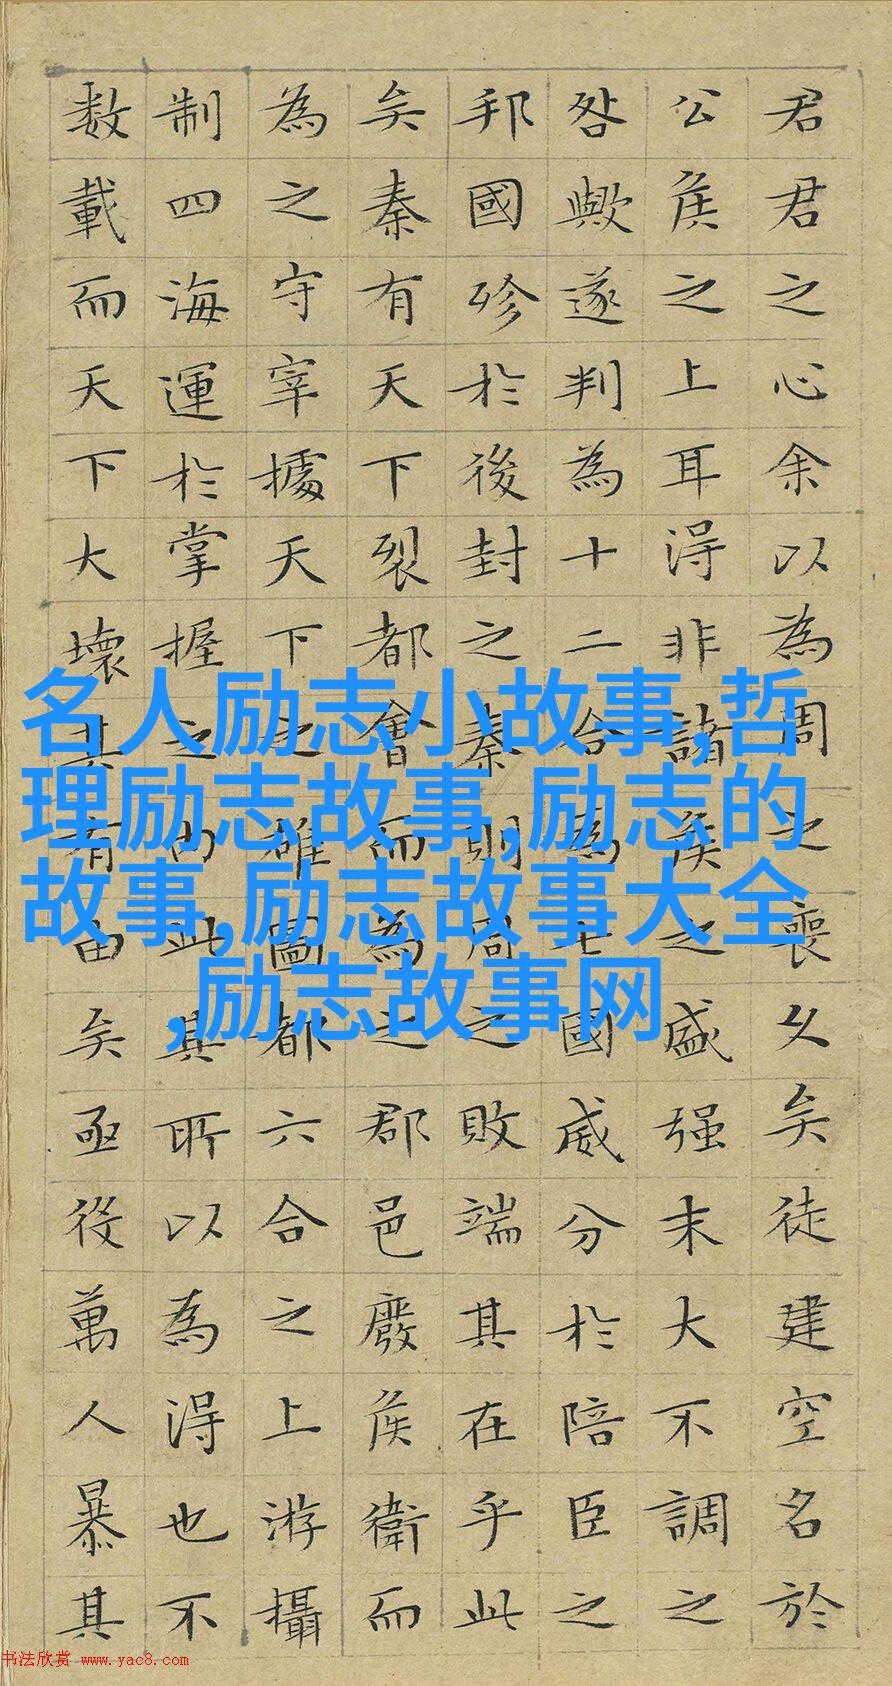 君君之心余以為周之喪久矣徒建空名於
公侯之上耳得非諸侯之盛强末大不調之
咎歟遂判為十二合為七國威分於陪臣之
邦國殄於後封之秦則周之敗端其在乎此
矣秦有天下裂都會而為之郡邑廢侯衛而
為之守宰據天下之雄圖都六合之上游攝
制四海運於掌握之内此其所以為得也不
数載而天下大壞其有由矣亟役萬人暴其
名人励志小故事,哲
理励志故事,励志的
故事,励志故事大全
,励志故事网
书法欣赏 www.yac8.com